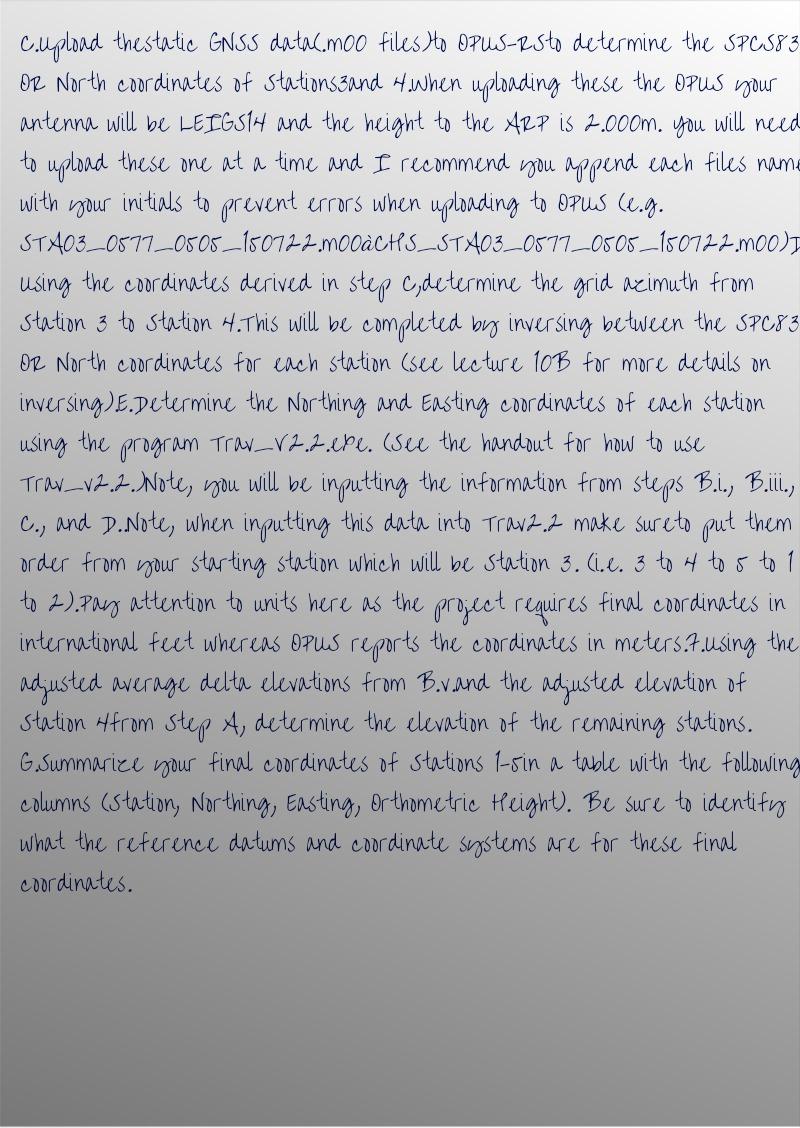 C.Upload thestatic GNSS data(.m00 files)to OPUS-RSto determine the SPCS83
OR North coordinates of Stations3and 4.When uploading these the OPUS your
antenna will be LEIGS14 and the height to the ARP is 2.000m. You will need
to upload these one at a time and I recommend you append each files name
with your initials to prevent errors when uploading to OPUS (e.g.
STA03_0577_0505_150722.m00àCHS_STA03_0577_0505_150722.m00)D
Using the coordinates derived in step C,determine the grid azimuth from
Station 3 to Station 4.This will be completed by inversing between the SPC83
OR North coordinates for each station (see lecture 10B for more details on
inversing)E.Determine the Northing and Easting coordinates of each station
using the program Trav_V2.2.exe. (See the handout for how to use
Trav_v2.2.)Note, you will be inputting the information from steps B.i., B.iii.,
C., and D.Note, when inputting this data into Trav2.2 make sureto put them
order from your starting station which will be Station 3. (i.e. 3 to 4 to 5 to 1
to 2).Pay attention to units here as the project requires final coordinates in
international feet whereas OPUS reports the coordinates in meters.F.Using the
adjusted average delta elevations from B.v.and the adjusted elevation of
Station 4from Step A, determine the elevation of the remaining stations.
G.Summarize your final coordinates of Stations 1-5in a table with the following
columns (Station, Northing, Easting, Orthometric Height). Be sure to identify
what the reference datums and coordinate systems are for these final
coordinates.